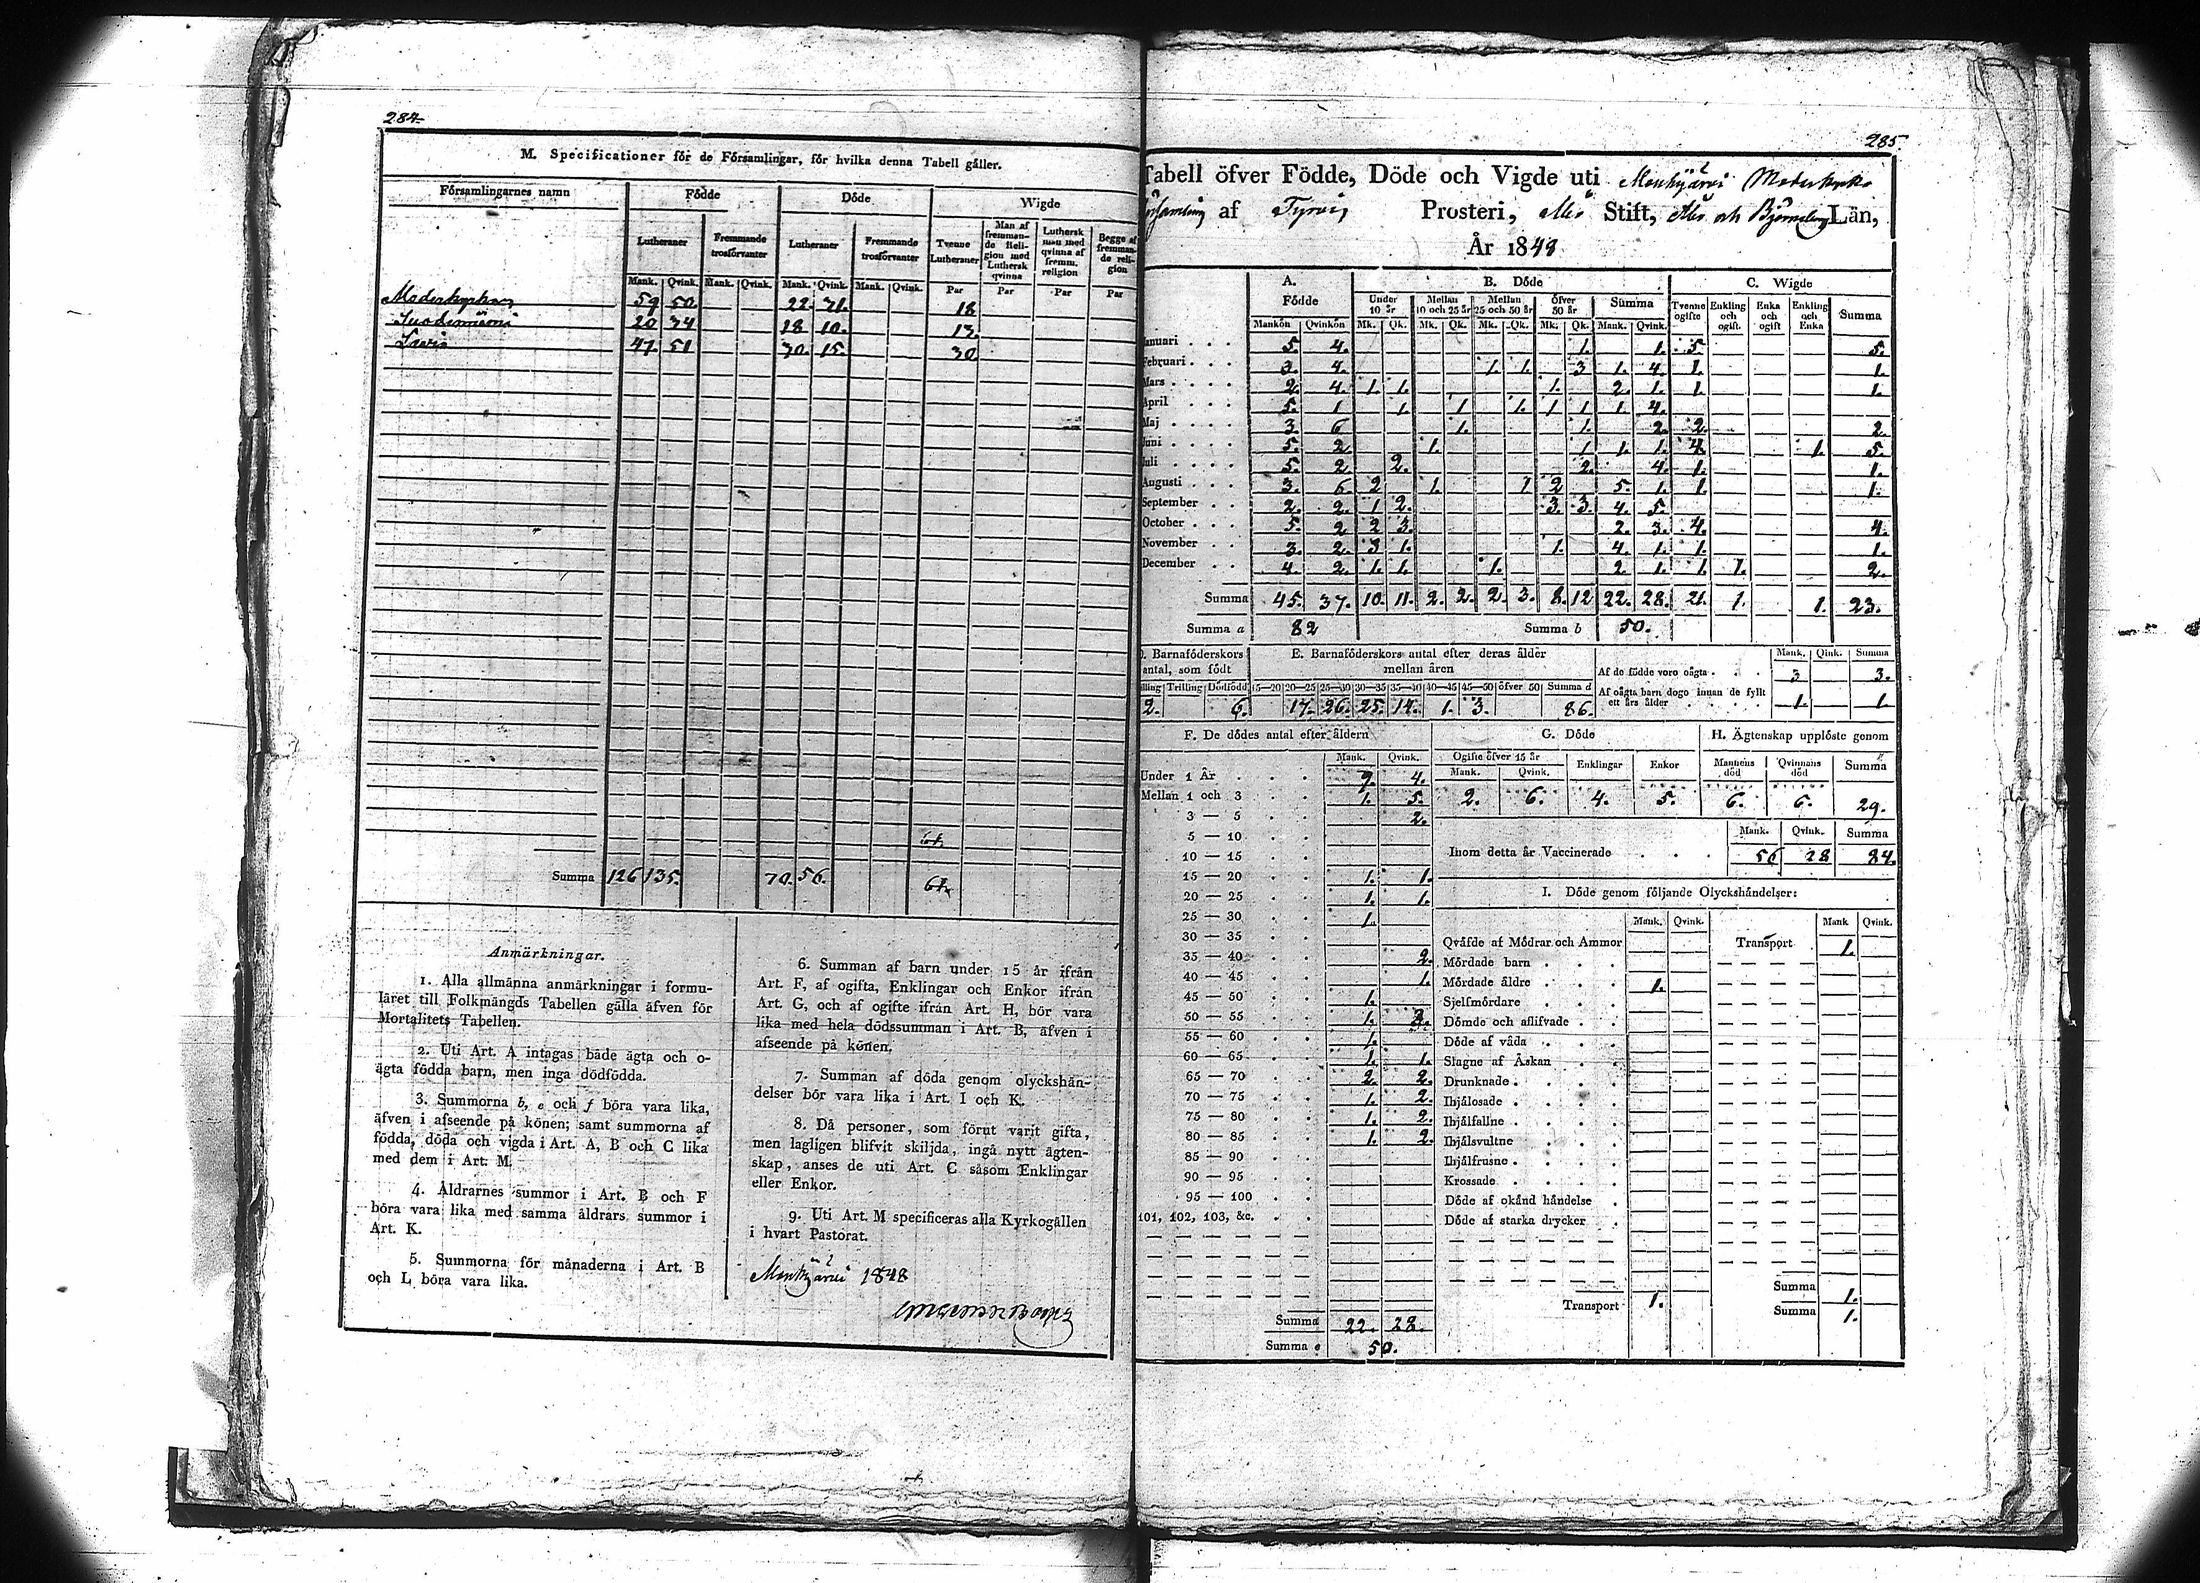 284
M. Specificationer för de Församlingar, för hvilka denna Tabell gäller.
Församlingarnes namn Födde Döde Wigde
Lutheraner Fremmande trosförvanter Lutheraner Fremmande trosförvanter Tvenne Lutheraner Man af fremmande Religion med Luthersk qvinna Luthersk man med qvinna af fremm. religion Begge af fremmande religion
Mank. Qvink. Mank. Qvink. Mank. Qvink. Mank. Qvink. Par Par Par Par
Moderkyrkan 59 50 22. 31. 18
Suodeniemi 20 34 18 10. 13.
Lavia 47. 51 30. 15. 30
61.
Summa 126 135. 70. 56. 61.
Anmärkningar.
1. Alla allmänna anmärkningar i formu-
läret till Folkmängds Tabellen gälla äfven för
Mortalitets Tabellen.
2. Uti Art. A intagas både ägta och o-
ägta födda barn, men inga dödfödda.
3. Summorna b, e och f böra vara lika,
äfven i afseende på könen; samt summorna af
födda, döda och vigda i Art. A, B och C lika
med dem i Art. M.
4. Åldrarnes summor i Art. B och F
böra vara lika med samma åldrars summor i
Art. K.
5. Summorna för månaderna i Art. B
och L böra vara lika.
6. Summan af barn under 15 år ifrån
Art. F, af ogifta, Enklingar och Enkor ifrån
Art. G, och af ogifte ifrån Art. H, bör vara
lika med hela dödssumman i Art. B, äfven i
afseende på könen.
7. Summan af döda genom olyckshän-
delser bör vara lika i Art. I och K.
8. Då personer, som förut varit gifta,
men lagligen blifvit skiljda, ingå nytt ägten-
skap, anses de uti Art. C såsom Enklingar
eller Enkor.
9. Uti Art. M specificeras alla Kyrkogällen
i hvart Pastorat.
Mouhijärvi 1848
285.
Tabell öfver Födde, Döde och Vigde uti Mouhijärvi Moderkyrko
församling af Tyrvis Prosteri, Åbo Stift, Åbo och Björneborgs Län,
År 1848
A. Födde B. Döde C. Wigde
Under 10 år Mellan 10 och 25 år Mellan 25 och 50 år öfver 50 år Summa Tvenne ogifte Enkling och ogift. Enka och ogift Enkling och Enka Summa
Mankön Qvinkön Mk. Qk. Mk. Qk. Mk. Qk. Mk. Qk. Mank. Qvink.
Januari 5. 4. 1. 1. 5. 5.
Februari 3. 4. 1. 1. 3 1. 4. 1. 1.
Mars 2. 4. 1. 1. 1. 2. 1. 1. 1.
April 5. 1 1. 1 1. 1 1 1. 4.
Maj 3. 6 1. 1. 2. 2. 2.
Juni 5. 2 1. 1 1. 1. 4. 1. 5.
Juli 5. 2 2. 2. 4. 1. 1.
Augusti 3. 6. 2 1. 1 2 5. 1. 1. 1.
September 2. 2. 1 2. 3. 3. 4. 5.
October 5. 2 2 3. 2. 3. 4. 4.
November 3. 2. 3 1. 1. 4. 1. 1. 1.
December 4. 2. 1. 1. 1. 2. 1. 1. 1. 2.
Summa 45. 37. 10. 11. 2. 2. 2. 3. 8. 12 22. 28. 21. 1. 1. 23.
Summa a 82 Summa b 50.
D. Barnaföderskors antal, som födt
E. Barnaföderskors antal efter deras ålder mellan åren
Mank. Qink. Summa
Af de födde voro oägta 3 3.
Af oägta barn dogo innan de fyllt ett års ålder 1. 1.
Tvilling Trilling Dödfödd 15—20 20—25 25—30 30—35 35—40 40—45 45—50 öfver 50 Summa d
2. 6. 17. 26. 25. 14. 1. 3. 86.
F. De dödes antal efter åldern
Mank. Qvink.
Under 1 År 9. 4.
Mellan 1 och 3 1. 5.
3 — 5 2.
5 — 10
10 — 15
15 — 20 1. 1.
20 — 25 1. 1.
25 — 30 1.
30 — 35
35 — 40 2.
40 — 45 1.
45 — 50 1.
50 — 55 1.
55 — 60 1.
60 — 65 1. 1.
65 — 70 2. 2.
70 — 75 1. 2.
75 — 80 1. 2.
80 — 85 1. 2.
85 — 90
90 — 95
95 — 100
101, 102, 103, &c.
Summa 22. 28.
Summa e 50.
G. Döde
Ogifte öfver 15 år Enklingar Enkor
Mank. Qvink.
2. 6. 4. 5.
H. Ägtenskap upplöste genom
Mannens död Qvinnans död Summa
6. 6. 29.
Mank. Qvink. Summa
Inom detta år Vaccinerade 56 28 84.
I. Döde genom följande Olyckshändelser:
Mank. Qvink. Mank Qvink.
Qväfde af Mödrar och Ammor
Mördade barn
Mördade äldre 1.
Sjelfmördare
Dömde och aflifvade
Döde af våda
Slagne af Åskan
Drunknade
Ihjälosade
Ihjälfallne
Ihjälsvultne
Ihjälfrusne
Krossade
Döde af okänd händelse
Döde af starka drycker
Transport 1.
Transport 1.
Summa 1.
Summa 1.